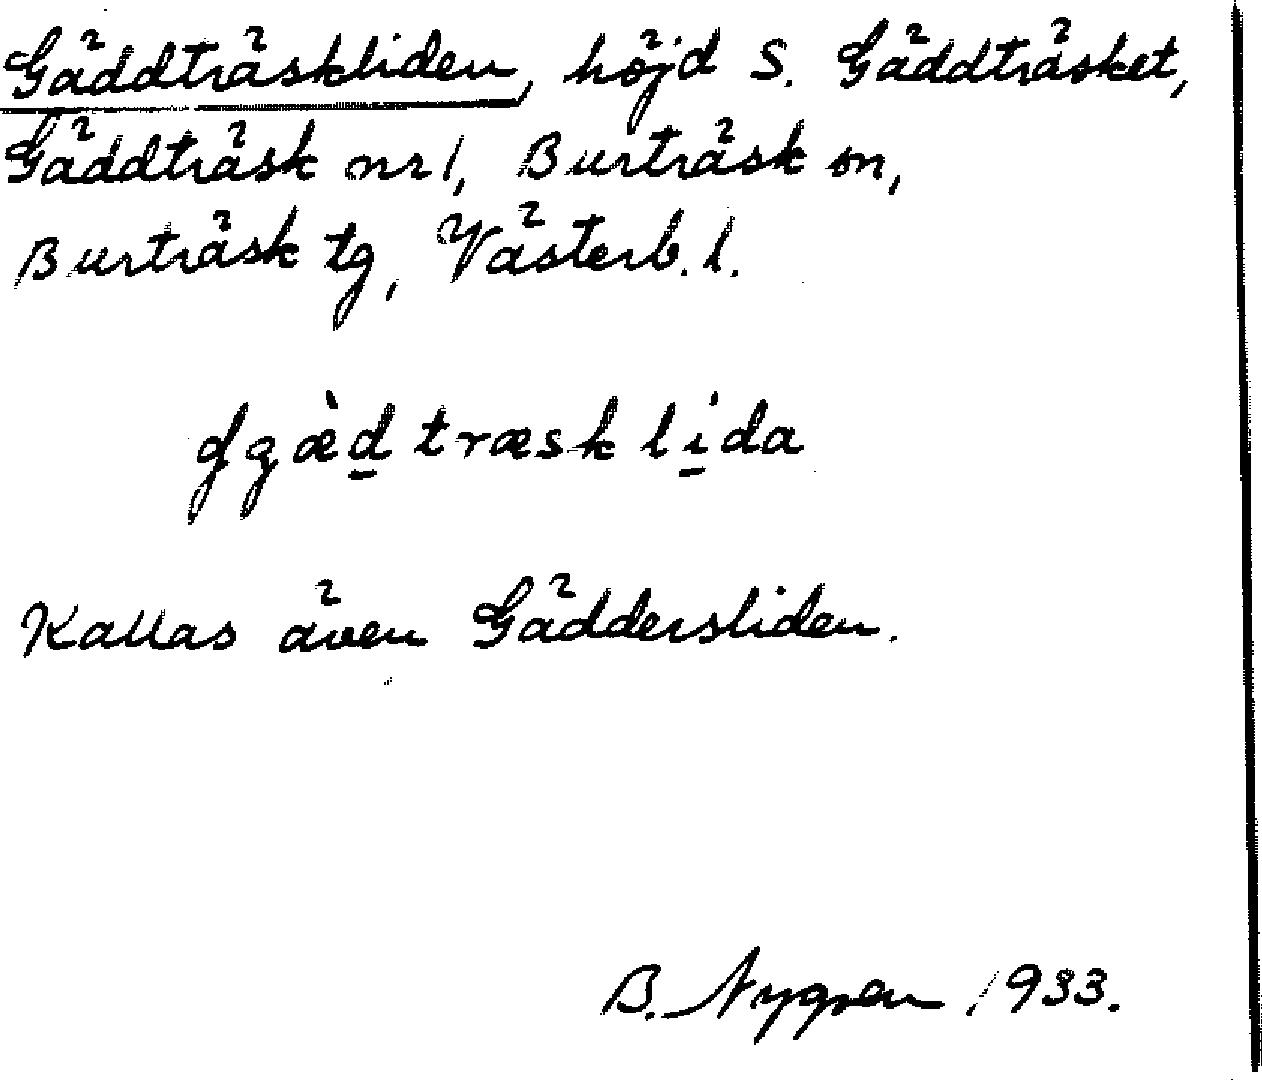 Gäddträskliden, höjd S. Gäddträsket,
Gäddträsk nr 1, Burträsk sn,
Burträsk tg, Västerb. l.
ɠgæ̀d̲træsk li̲da
Kallas även Gäddersliden.
B. Nygren 1933.